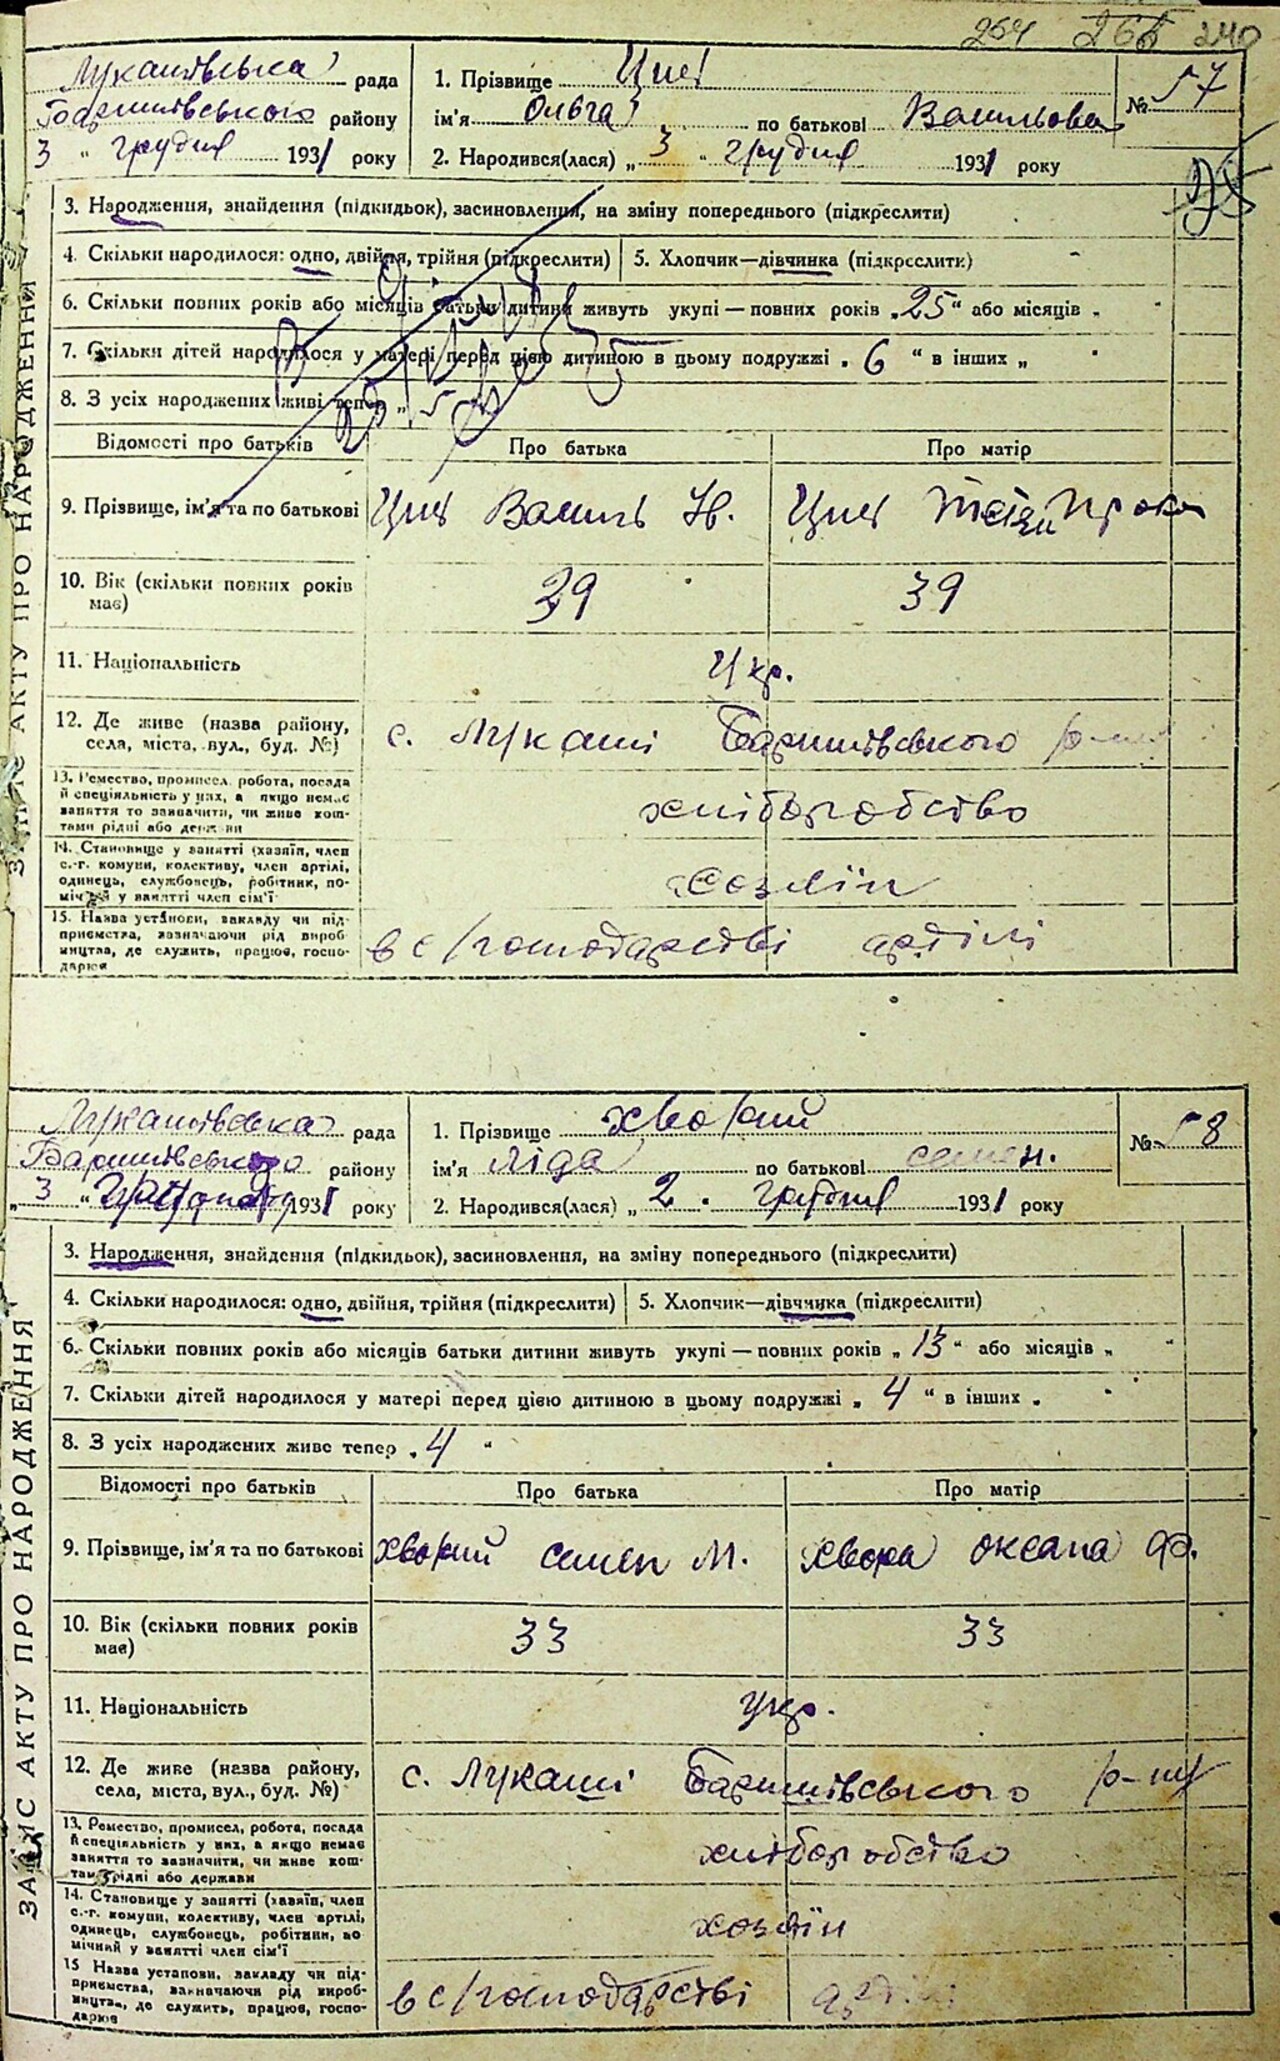 264 268 240
Лукашівська рада
Баришівського району
3 " грудня 1931 року
1. Прізвище
ім'я Ольга по батькові Васильова
2. Народився(лася) „ 3 " грудня 1931 року
№ 57
3. Народження, знайдення (підкидьок), засиновлення, на зміну попереднього (підкреслити)
4. Скільки народилося: одно, двійня, трійня (підкреслити) 5. Хлопчик—дівчинка (підкреслити)
6. Скільки повних років або місяців батьки дитини живуть укупі — повних років „ 25 " або місяців „
7. Скільки дітей народилося у матері перед цією дитиною в цьому подружжі „ 6 " в інших „
8. З усіх народжених живі тепер „ 5
Відомості про батьків Про батька Про матір
9. Прізвище, ім'я та по батькові Василь
10. Вік (скільки повних років має) 39 39
11. Національність Укр.
12. Де живе (назва району, села, міста, вул., буд. №) с. Лукаші Баришівського р-ну
13. Ремество, промисел, робота, посада й спеціяльність у них, а якщо немає заняття то зазначити, чи живе коштами рідні або держави хліборобство
14. Становище у занятті (хазяїн, член с.-г. комуни, колективу, член артілі, одинець, службовець, робітник, помічний у занятті член сім'ї хозяїн
15. Назва установи, закладу чи підприємства, зазначаючи рід виробництва, де служить, працює, господарює в с/господарстві артілі
ЗАПИС АКТУ ПРО НАРОДЖЕННЯ
Лукашівська рада
Баришівського району
„ 3 " 1931 року
1. Прізвище Хворий
ім'я Ліда по батькові Семен.
2. Народився(лася) „ 2 " грудня 1931 року
№ 58
3. Народження, знайдення (підкидьок), засиновлення, на зміну попереднього (підкреслити)
4. Скільки народилося: одно, двійня, трійня (підкреслити) 5. Хлопчик—дівчинка (підкреслити)
6. Скільки повних років або місяців батьки дитини живуть укупі — повних років „ 13 " або місяців „ "
7. Скільки дітей народилося у матері перед цією дитиною в цьому подружжі „ 4 " в інших „
8. З усіх народжених живе тепер „ 4 "
Відомості про батьків Про батька Про матір
9. Прізвище, ім'я та по батькові Хворий Семен М. Хвора Оксана Ф.
10. Вік (скільки повних років має) 33 33
11. Національність Укр.
12. Де живе (назва району, села, міста, вул., буд. №) с. Лукаші Баришівського р-ну
13. Ремество, промисел, робота, посада й спеціяльність у них, а якщо немає заняття то зазначити, чи живе коштами рідні або держави хліборобство
14. Становище у занятті (хазяїн, член с.-г. комуни, колективу, член артілі, одинець, службовець, робітник, помічний у занятті член сім'ї хозяїн
15 Назва установи, закладу чи підприємства, зазначаючи рід виробництва, де служить, працює, господарює в с/господарстві артілі
ЗАПИС АКТУ ПРО НАРОДЖЕННЯ